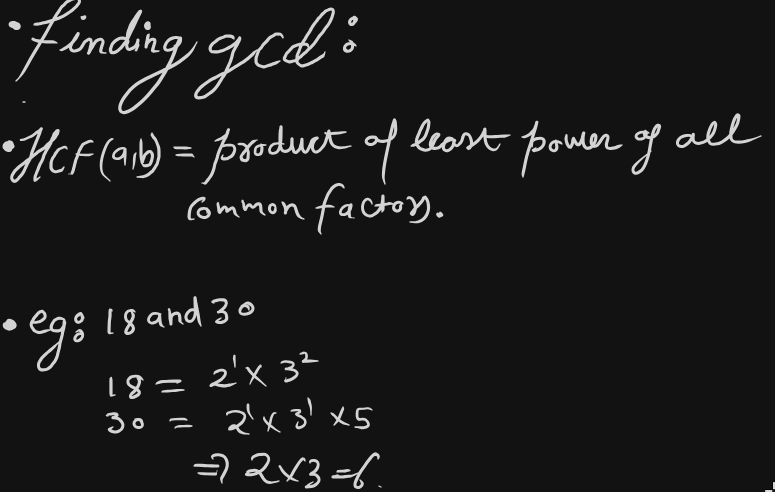 • finding gcd:
• HCF(a,b) = product of least power of all
common factors.
• eg: 18 and 30
18 = 2¹ × 3²
30 = 2¹ × 3¹ × 5
⇒ 2×3=6.